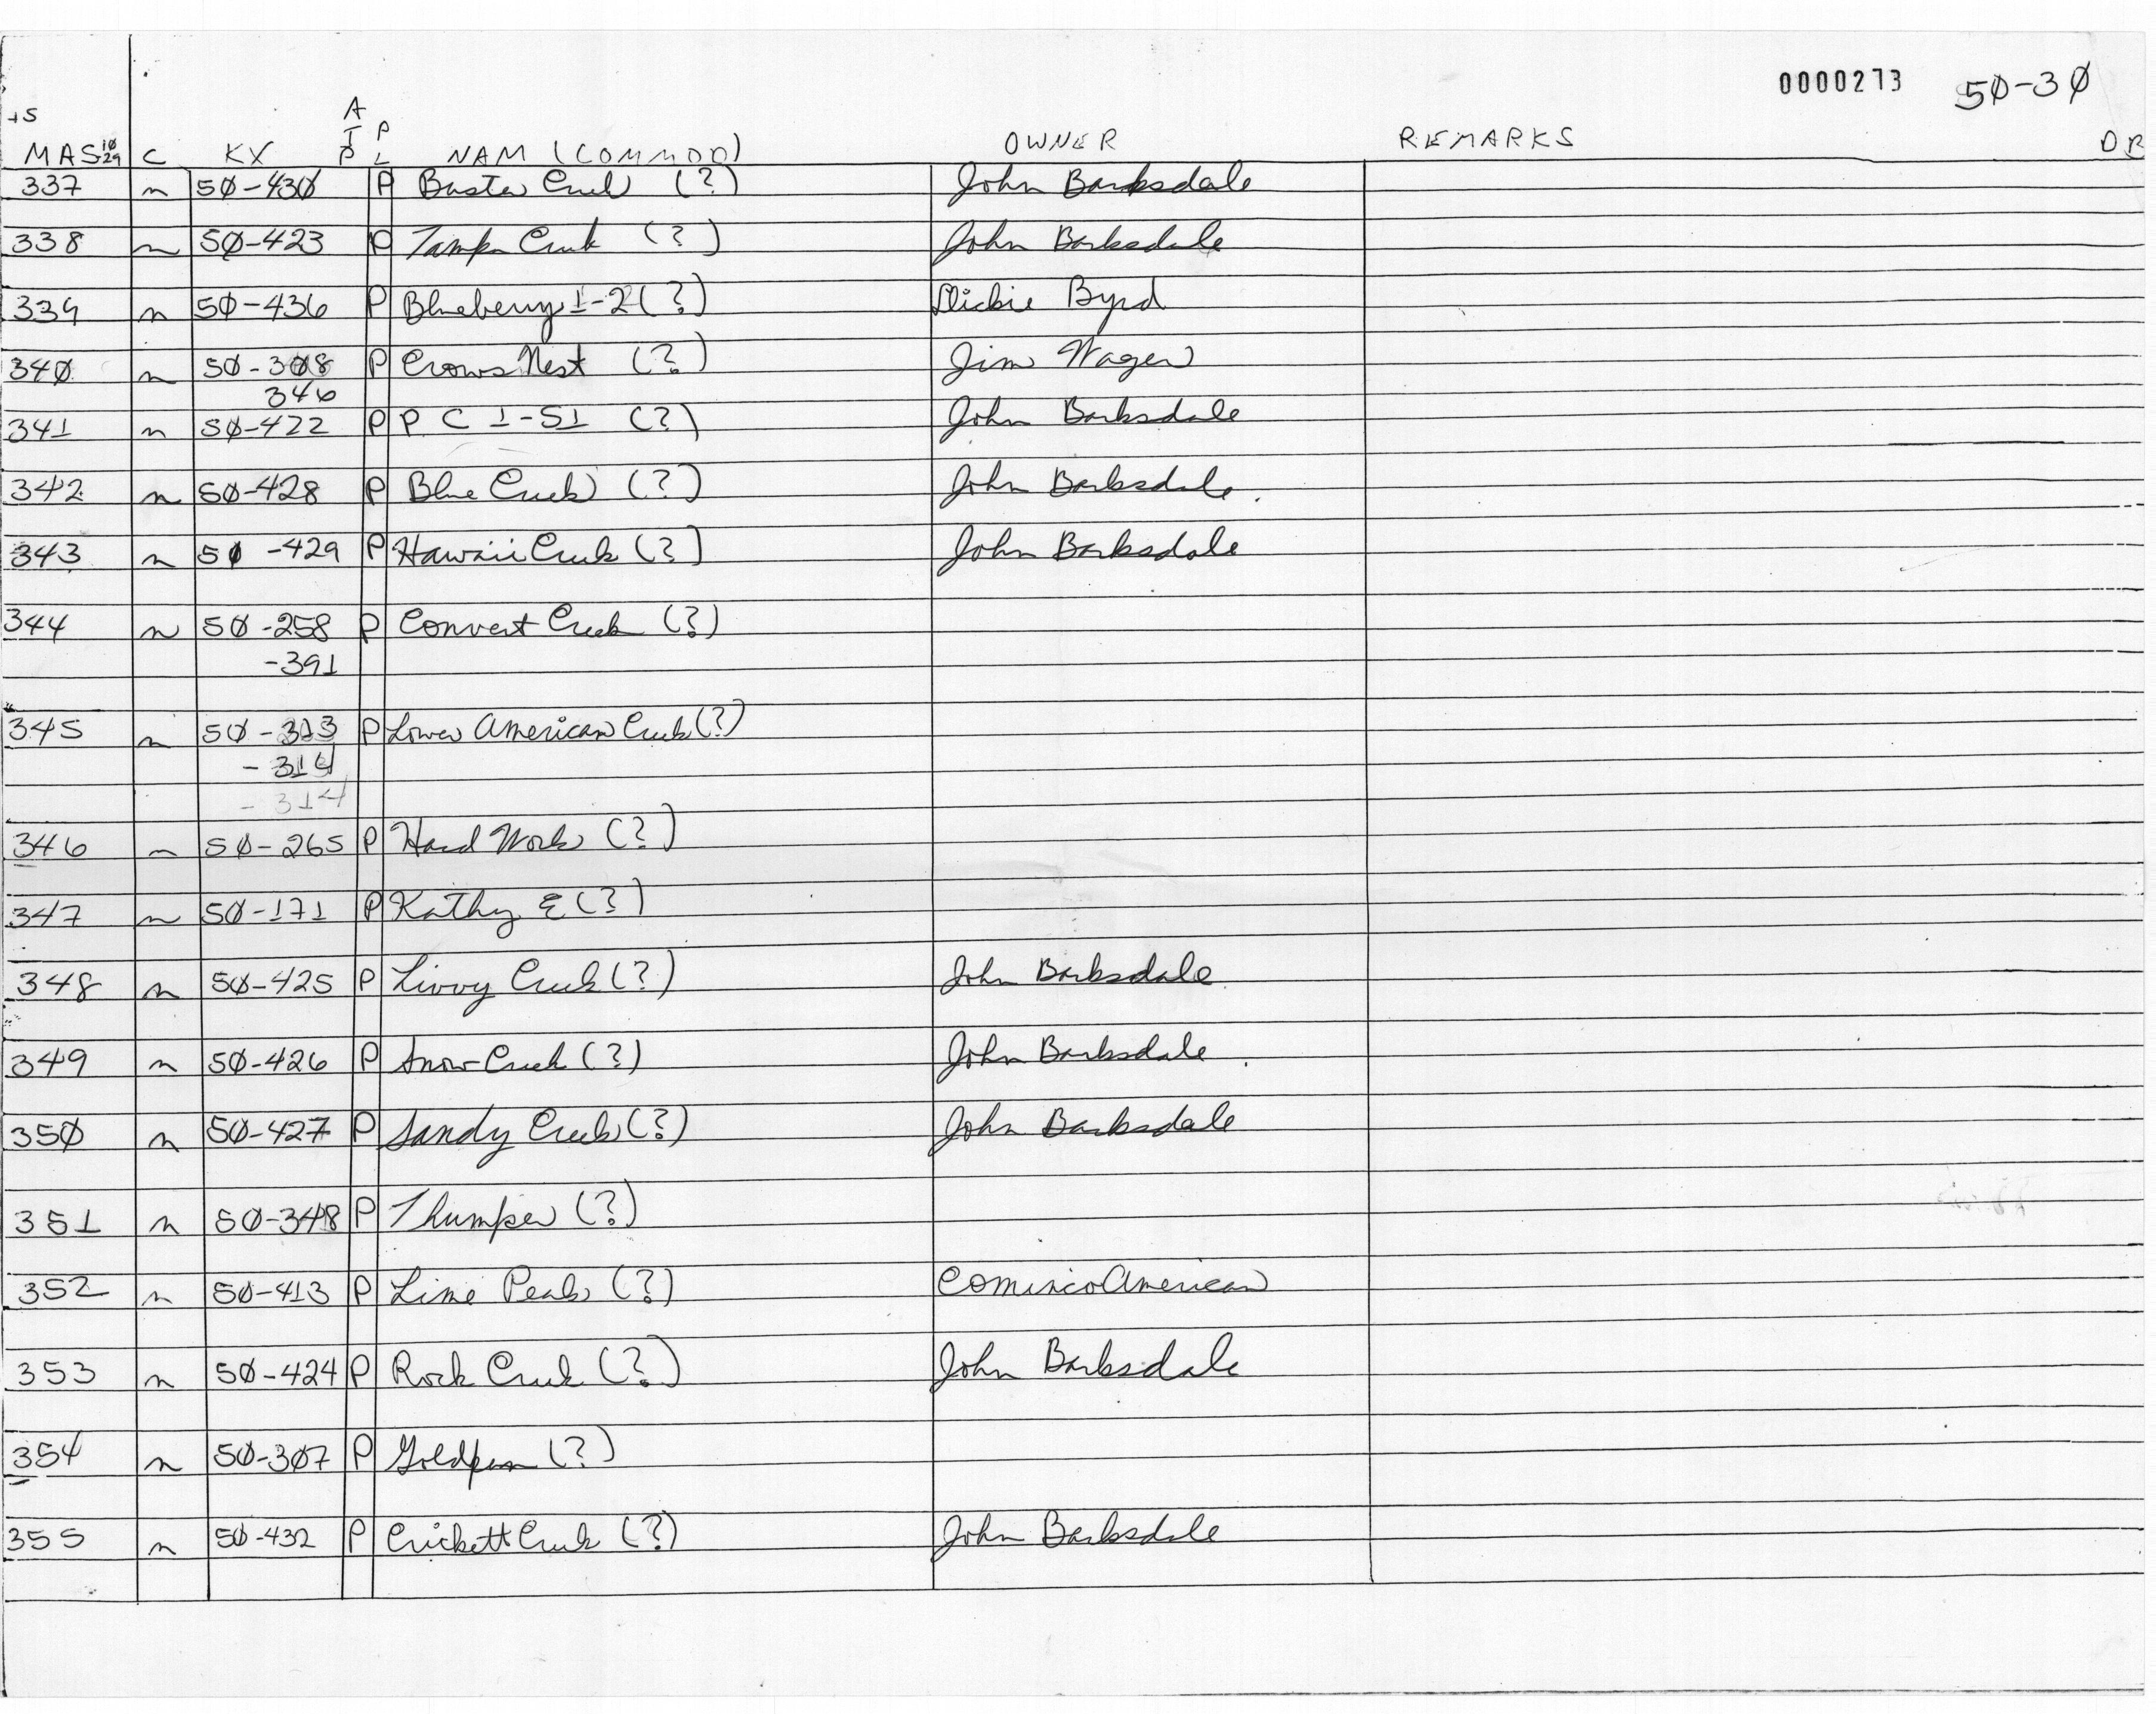 0000273 50-30
+S
A
T P
MAS 10/29 C KX P L NAM (COMMOD) OWNER REMARKS DR
337 m 50-430 P Buster Creek (?) John Barksdale
338 m 50-423 P Tampa Creek (?) John Barksdale
339 m 50-436 P Blueberry 1-2 (?) Dickie Byrd
340 m 50-308 P Crows Nest (?) Jim Wagen
346
341 m 50-422 P P C 1-51 (?) John Barksdale
342 m 50-428 P Blue Creek (?) John Barksdale
343 m 50-429 P Hawaii Creek (?) John Barksdale
344 m 50-258 P Convert Creek (?)
-391
345 m 50-313 P Lower American Creek (?)
-314
-314
346 m 50-265 P Hard Work (?)
347 m 50-171 P Kathy E (?)
348 m 50-425 P Livvy Creek (?) John Barksdale
349 m 50-426 P Snow Creek (?) John Barksdale
350 m 50-427 P Sandy Creek (?) John Barksdale
351 m 50-348 P Thumper (?)
352 m 50-413 P Lime Peak (?) Cominco American
353 m 50-424 P Rock Creek (?) John Barksdale
354 m 50-307 P Goldpan (?)
355 m 50-432 P Crickett Creek (?) John Barksdale